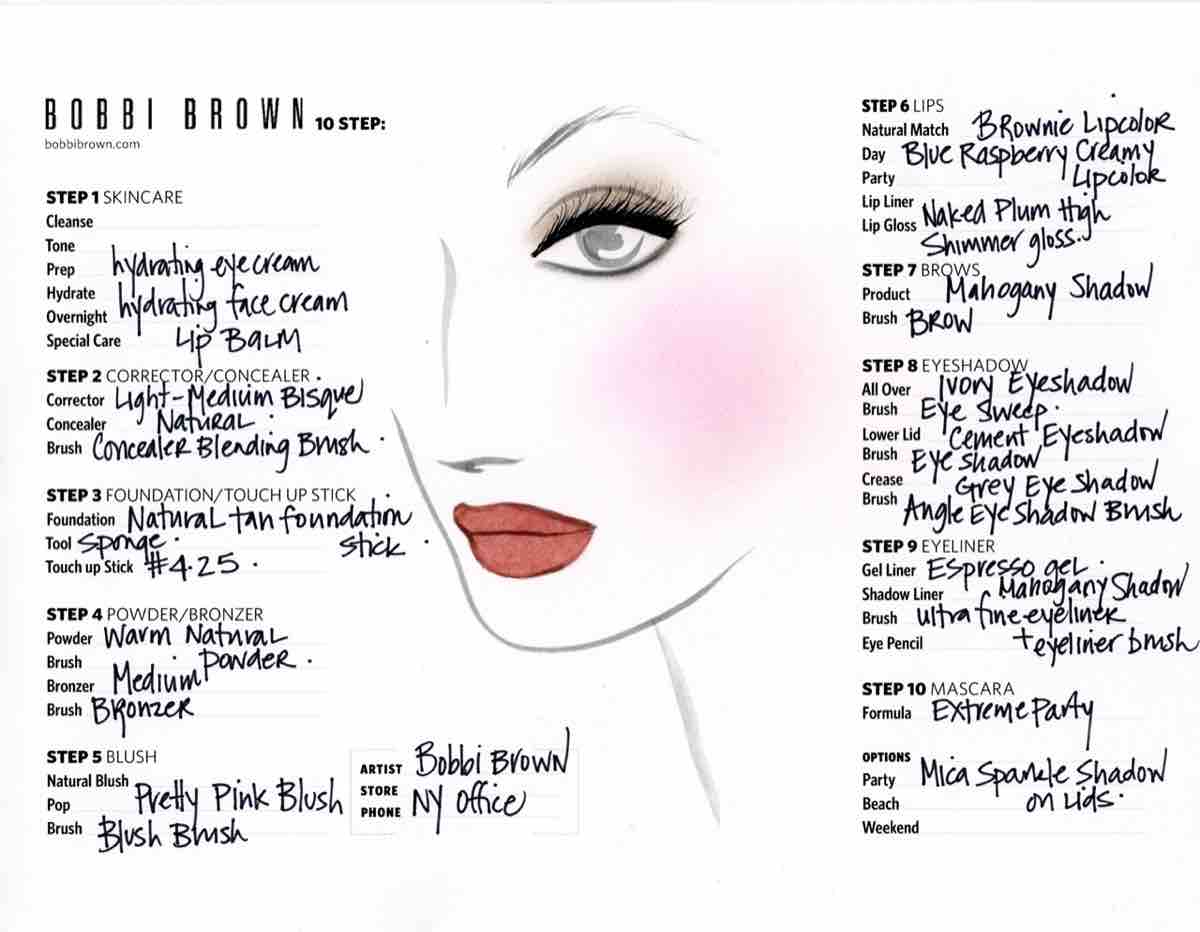 BOBBI BROWN 10 STEP:
bobbibrown.com
STEP 1 SKINCARE
Cleanse
Tone
Prep hydrating eye cream
Hydrate
Overnight hydrating face cream
Special Care Lip Balm
STEP 2 CORRECTOR/CONCEALER
Corrector Light-Medium Bisque
Concealer Natural
Brush Concealer Blending Brush
STEP 3 FOUNDATION/TOUCH UP STICK
Foundation Natural tan foundation
Tool Sponge. stick
Touch up Stick #4.25
STEP 4 POWDER/BRONZER
Powder Warm Natural
Brush Powder.
Bronzer Medium
Brush Bronzer
STEP 5 BLUSH
Natural Blush
Pop Pretty Pink Blush
Brush Blush Brush
ARTIST Bobbi Brown
STORE
PHONE NY Office
STEP 6 LIPS
Natural Match Brownie Lipcolor
Day Blue Raspberry Creamy
Party Lipcolor
Lip Liner
Lip Gloss Naked Plum High
Shimmer gloss.
STEP 7 BROWS
Product Mahogany Shadow
Brush Brow
STEP 8 EYESHADOW
All Over Ivory Eyeshadow
Brush Eye Sweep.
Lower Lid Cement Eyeshadow
Brush Eye Shadow
Crease Grey Eye Shadow
Brush Angle Eye Shadow Brush
STEP 9 EYELINER
Gel Liner Espresso gel.
Shadow Liner Mahogany Shadow
Brush ultra fine eyeliner
Eye Pencil + eyeliner brush
STEP 10 MASCARA
Formula Extreme Party
OPTIONS
Party Mica Sparkle Shadow
Beach on Lids.
Weekend